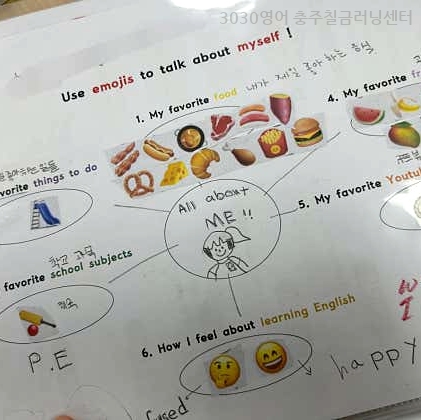 3030영어 충주칠금러닝센터
Use emojis to talk about myself !
1. My favorite food 내가 제일 좋아하는 음식
4. My favorite
vorite things to do
All about
ME !!
5. My favorite Youtu
학교 과목
favorite school subjects
체육
P.E
6. How I feel about learning English
happy